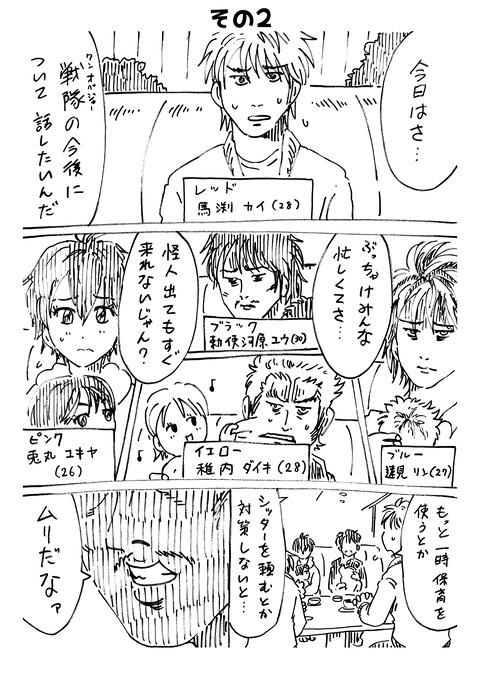 その2
今日はさ…
戦隊の今後に
ついて話したいんだ
レッド
馬渕 カイ(28)
ぶっちゃけみんな
忙しくてさ…
怪人出てもすぐ
来れないじゃん?
ブラック
勅使河原ユウ(30)
ブルー
見 リン(27)
イエロー
稚内 ダイキ(28)
ピンク
兎丸 ユキヤ
(26)
もっと一時保育を
使うとか
シッターを頼むとか
対策しないと…
ムリだなァ